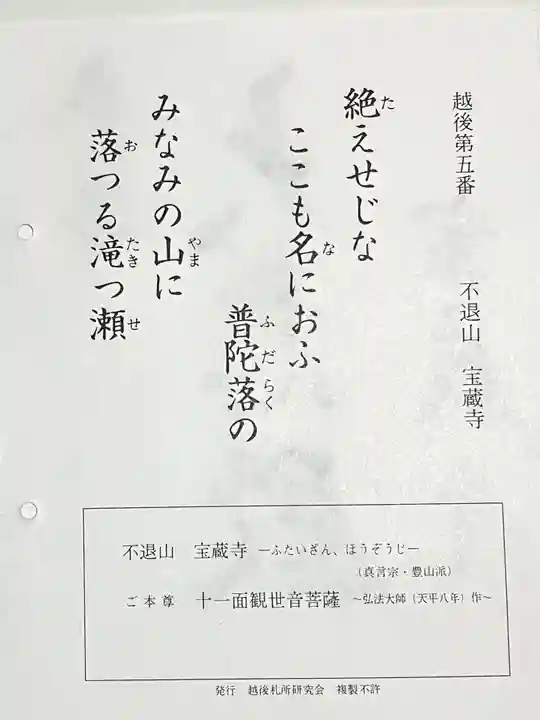 越後第五番　不退山　宝蔵寺
絶えせじな
ここも名におふ
普陀落の
みなみの山に
落つる滝つ瀬
た
な
ふだらく
やま
お　たき　せ
不退山　宝蔵寺　―ふたいざん、ほうぞうじ―
（真言宗・豊山派）
ご本尊　十一面観世音菩薩　～弘法大師（天平八年）作～
発行　越後札所研究会　複製不許